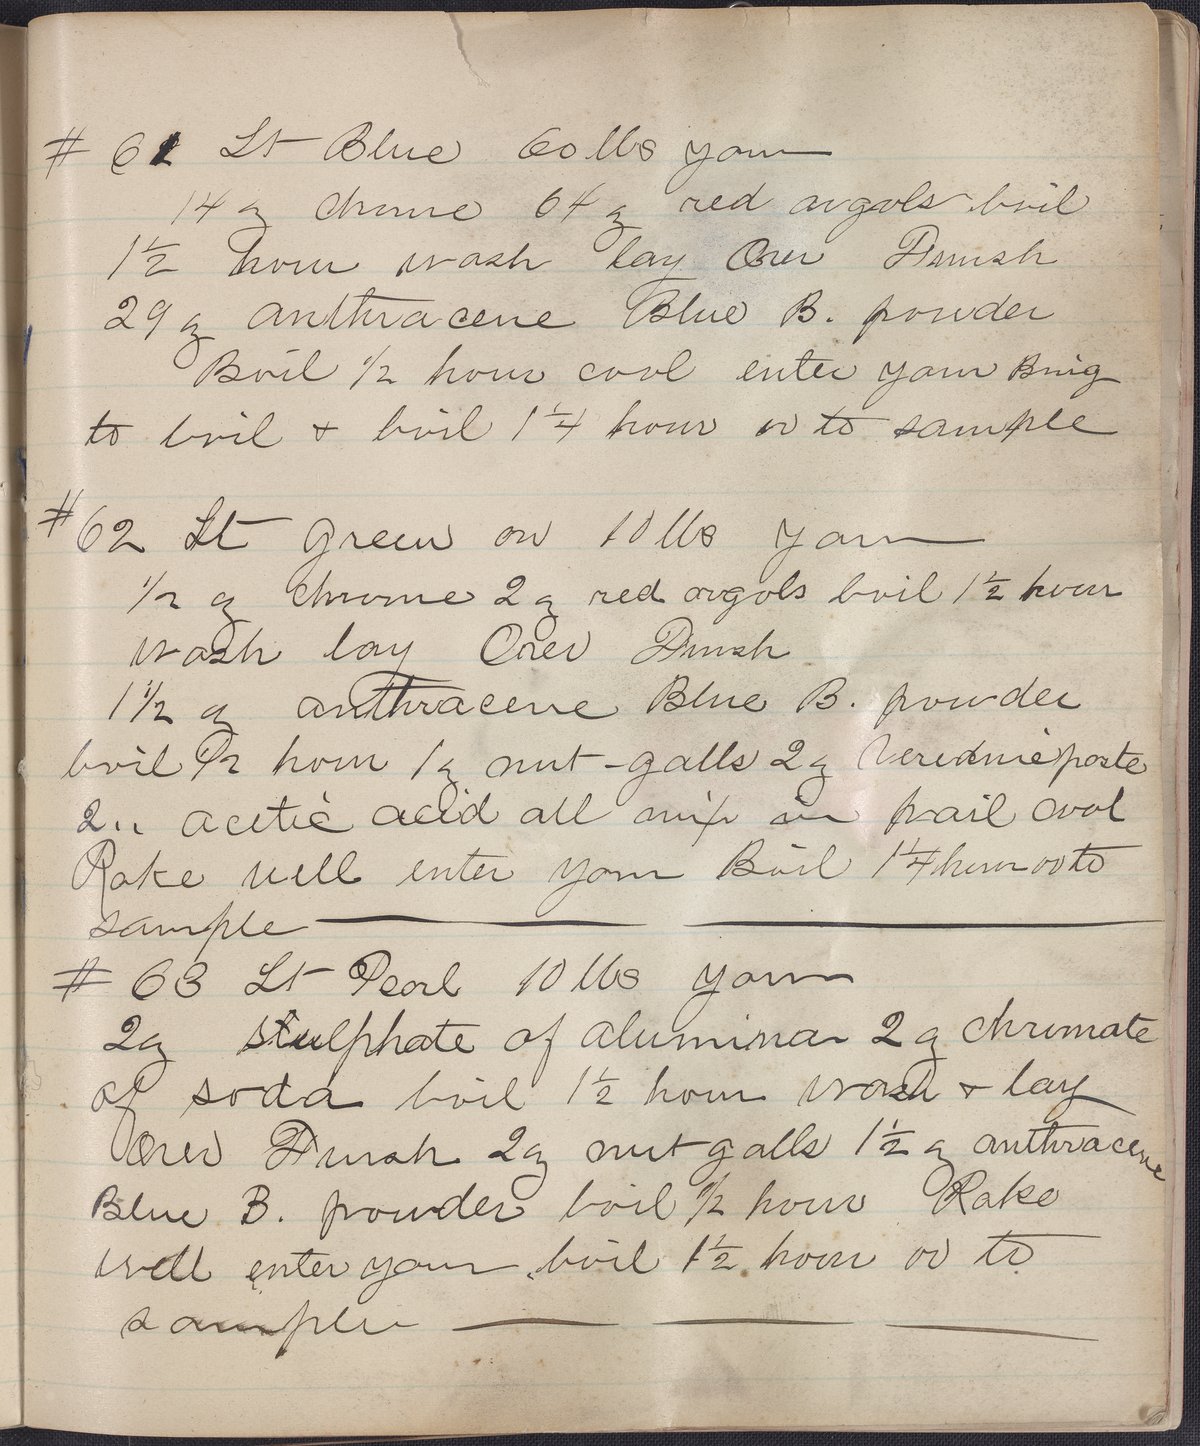 # 61 Lt Blue 60 lbs yarn
14 ℥ chrome 64 ℥ red argols boil
1 1/2 hour wash lay Over Finish
29 ℥ anthracene Blue B. powder
Boil 1/2 hour cool enter yarn Bring
to boil + boil 1 1/4 hour or to sample
#62 Lt green on 10 lbs yarn
1/2 ℥ chrome 2 ℥ red argols boil 1 1/2 hour
wash lay Over Finish
1 1/2 ℥ anthracene Blue B. powder
boil 1/2 hour 1 ℥ nut-galls 2 ℥ paste
2 " acetic acid all mix in pail cool
Rake well enter yarn Boil 1 1/4 hour or to
sample
# 63 Lt Pearl 10 lbs yarn
2 ℥ sulphate of alumina 2 ℥ chromate
of soda boil 1 1/2 hour wash + lay
Over Finish 2 ℥ nut galls 1 1/2 ℥ anthracene
Blue B. powder boil 1/2 hour Rake
well enter yarn boil 1 1/2 hour or to
sample